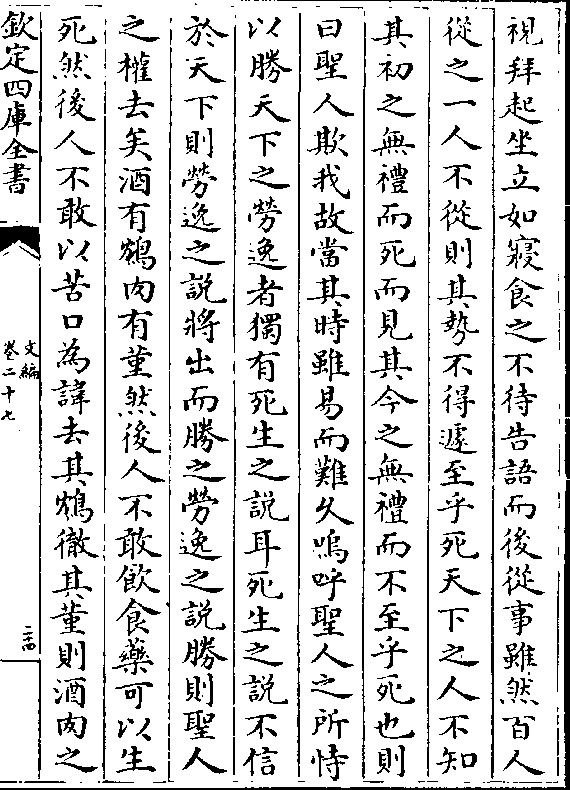 視拜起坐立如寢食之不待告語而後從事雖然百人
從之一人不從則其勢不得遽至乎死天下之人不知
其初之無禮而死而見其今之無禮而不至乎死也則
曰聖人欺我故當其時雖易而難久嗚呼聖人之所恃
以勝天下之勞逸者獨有死生之說耳死生之說不信
於天下則勞逸之說將出而勝之勞逸之說勝則聖人
之權去矣酒有鴆肉有堇然後人不敢飲食藥可以生
死然後人不敢以苦口為諱去其鴆徹其堇則酒肉之
欽定四庫全書
文編
卷二十七
二四